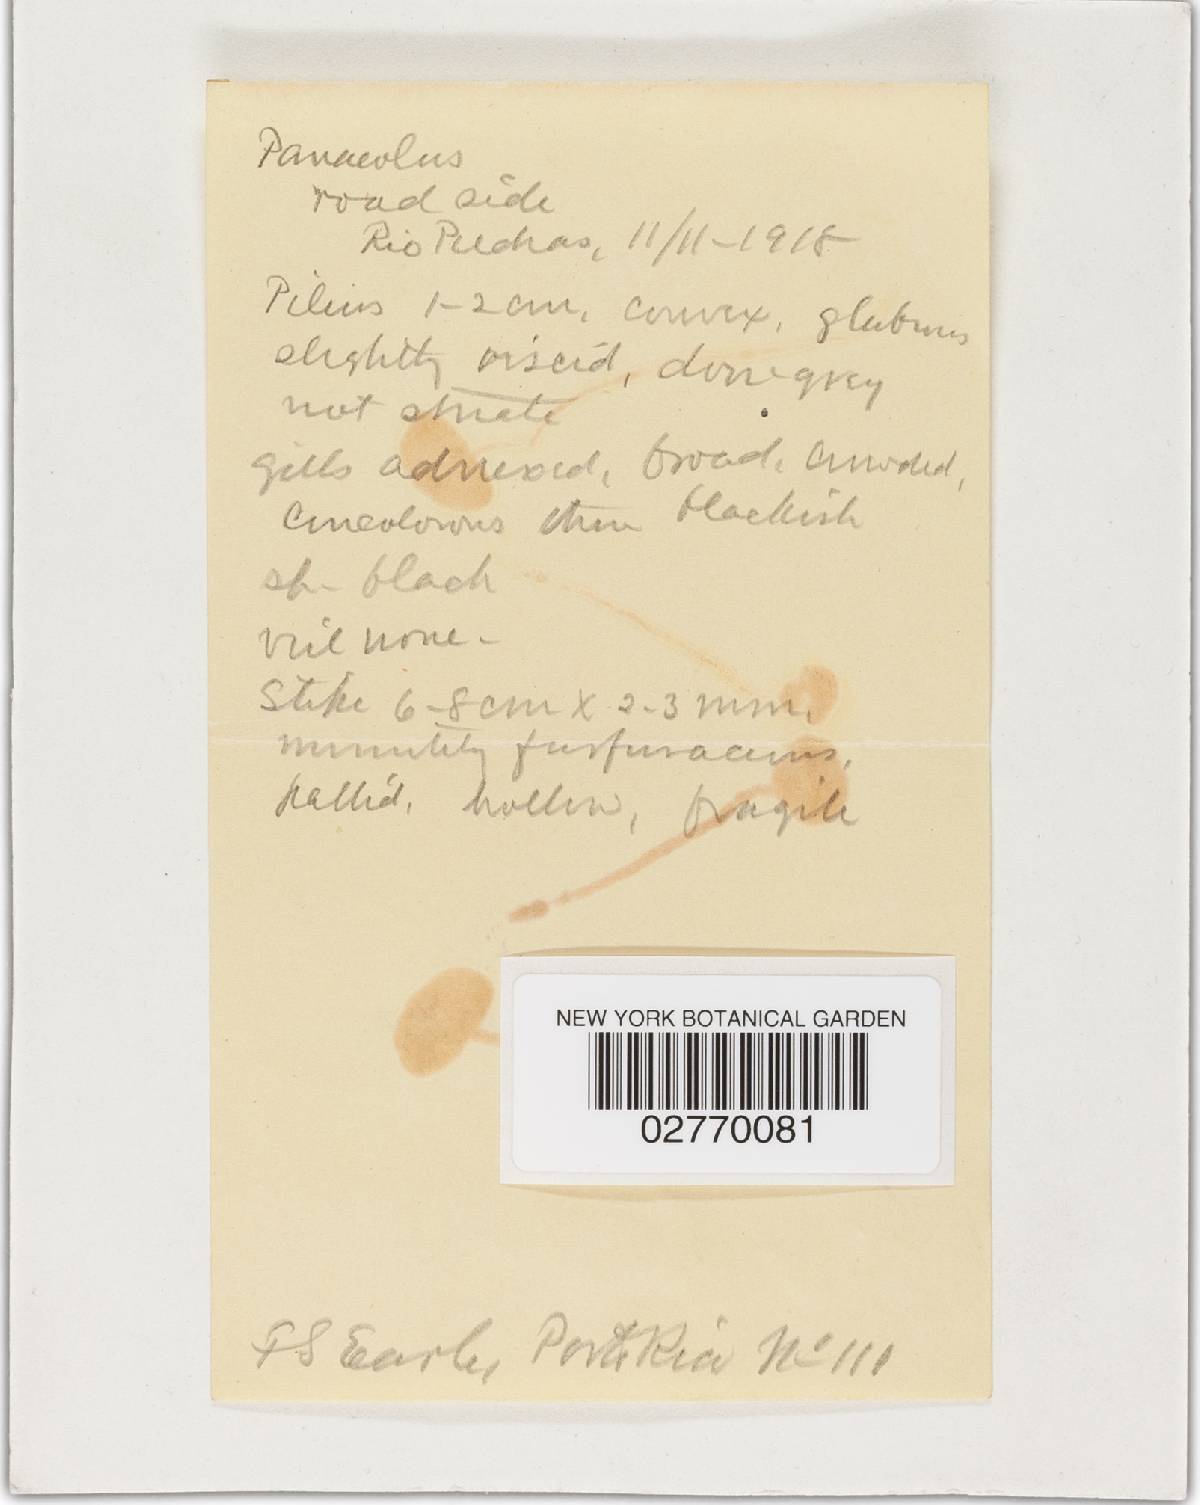 Panaeolus
road side
Rio Piedras, 11/11-1918
Pileus 1-2 cm, convex, glabrous
slightly viscid, dove grey
not striate
gills adnexed, broad, crowded,
concolorous then blackish
sp- black
veil none-
Stipe 6-8 cm x 2-3 mm,
minutely furfuraceous,
pallid, hollow, fragile
NEW YORK BOTANICAL GARDEN
02770081
FS Earle, Porto Rico No 111